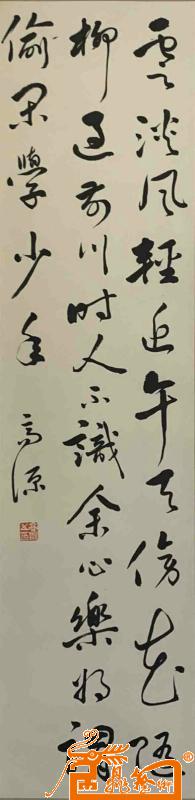 雲淡風輕近午天傍花随
柳過前川時人不識余心樂将謂
偷閑學少年 高源